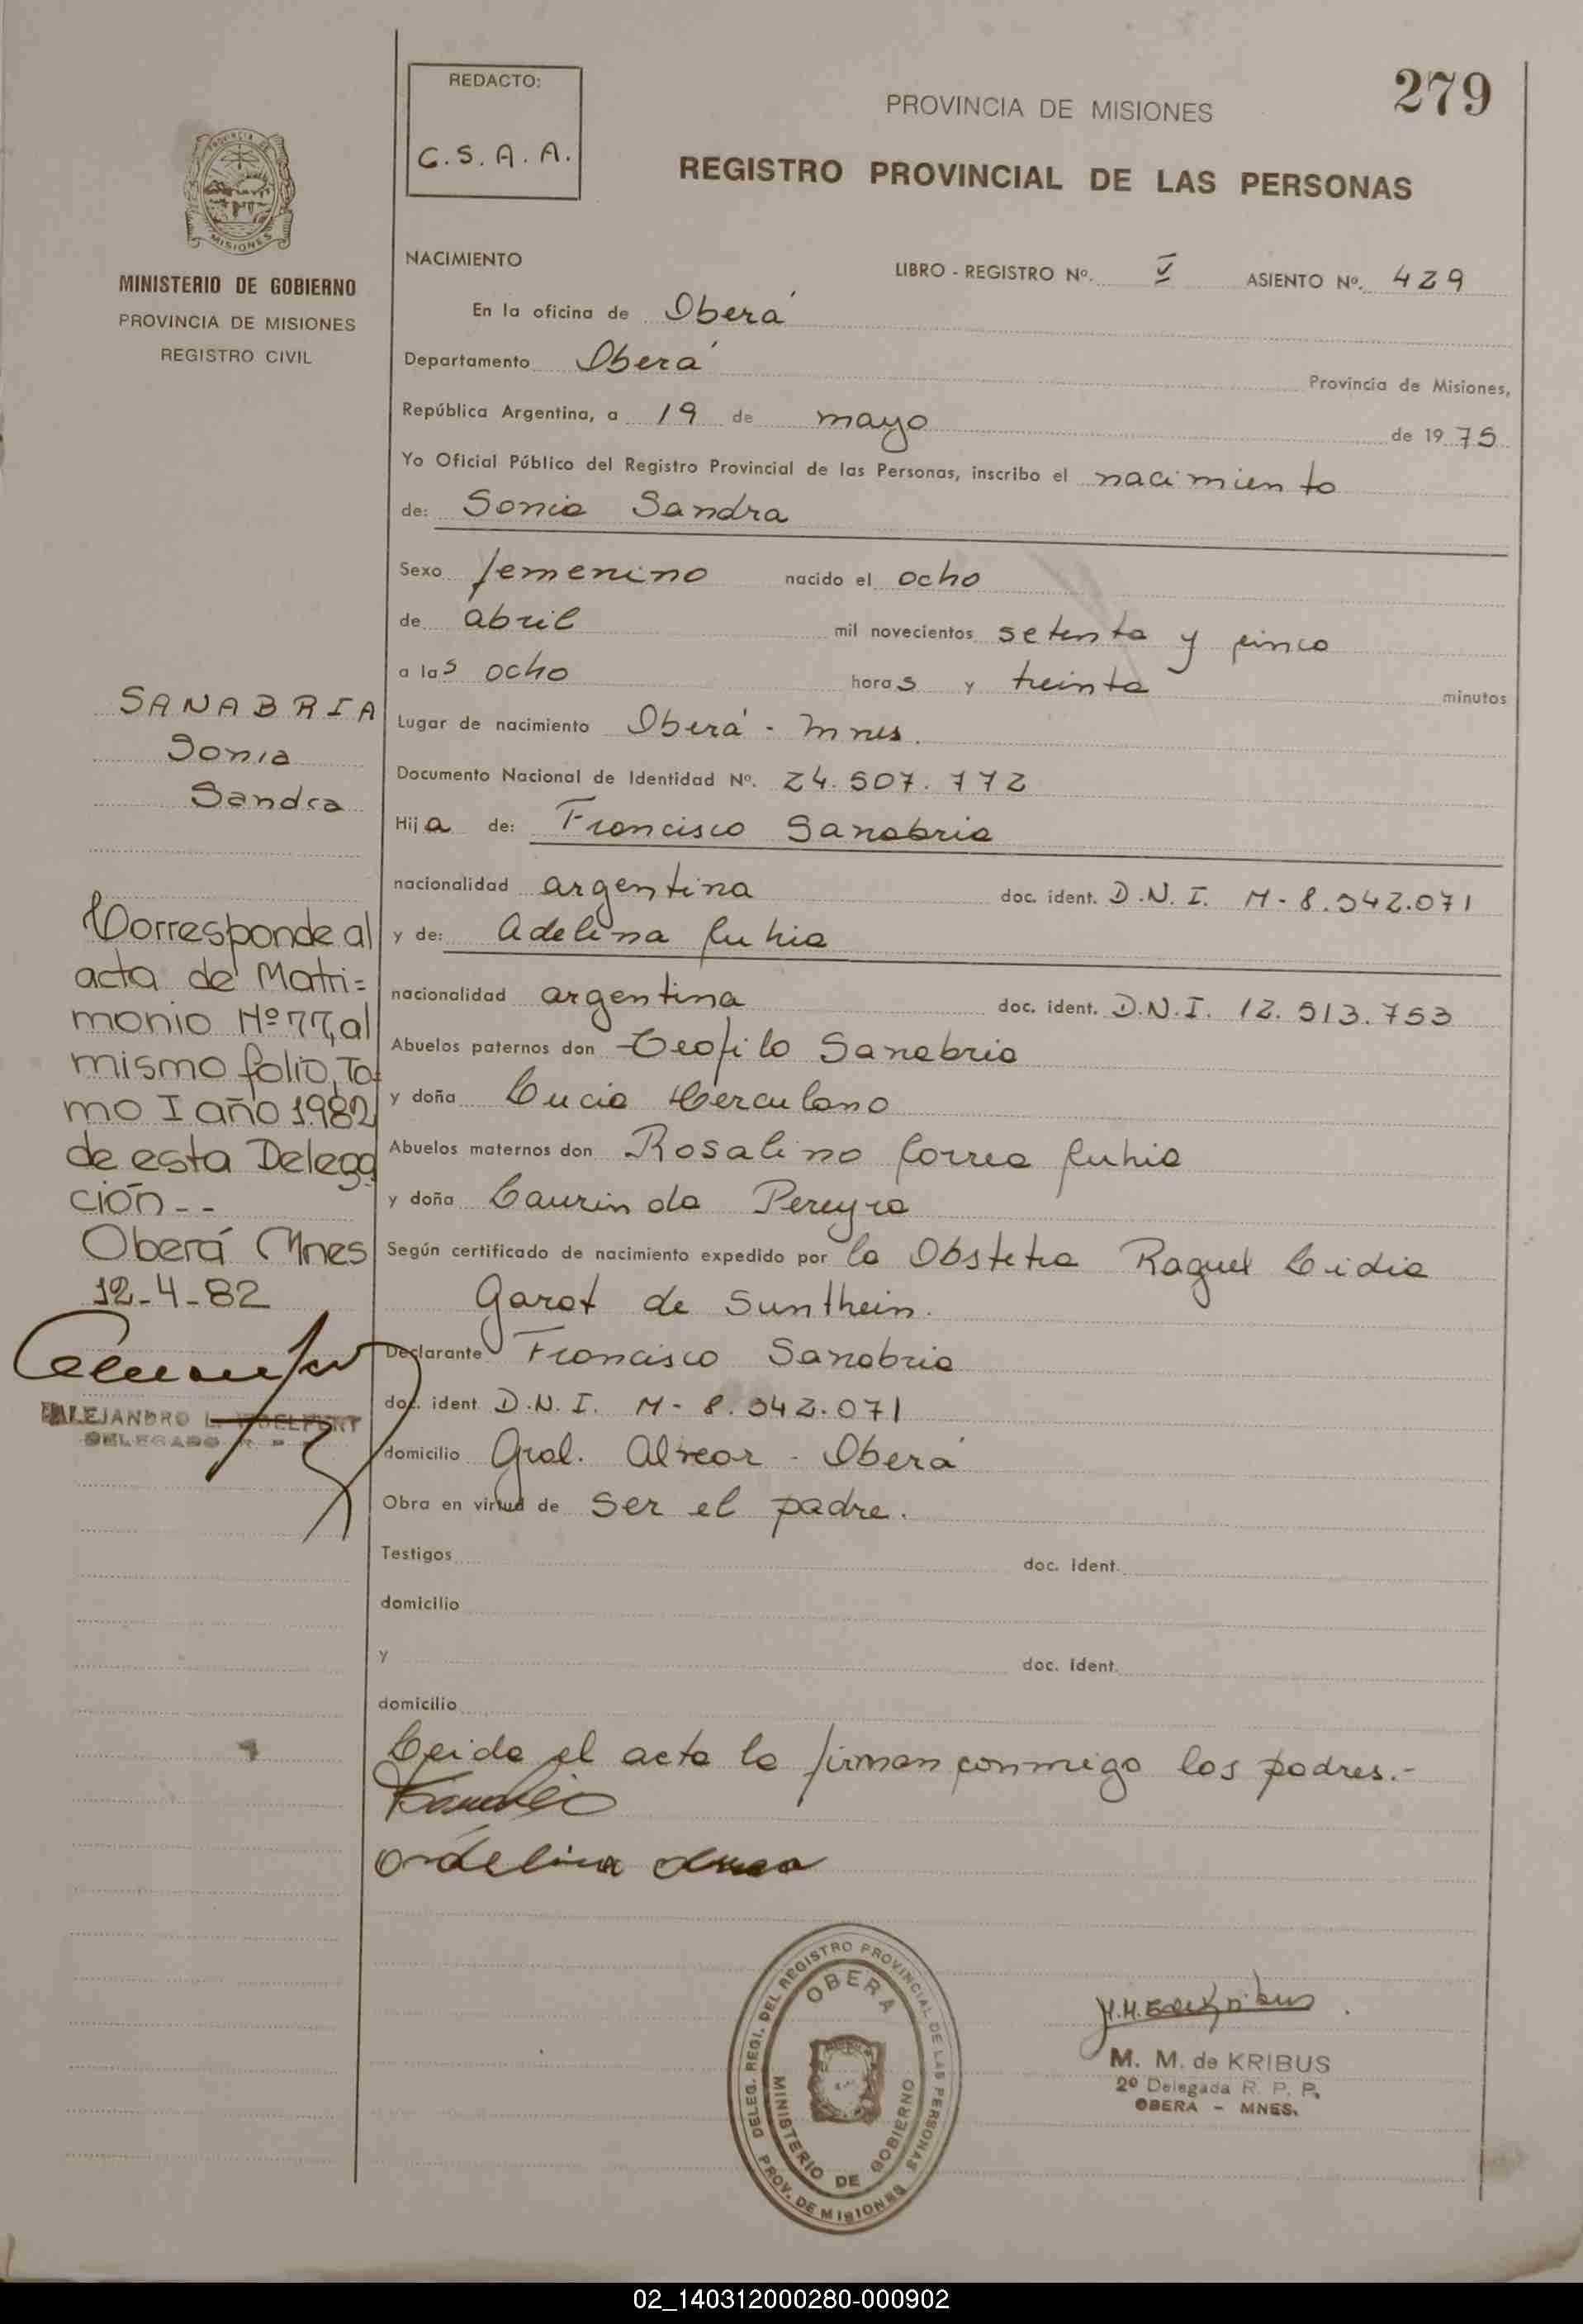 279
REDACTO:
C.S.A.A.
PROVINCIA DE MISIONES
REGISTRO PROVINCIAL DE LAS PERSONAS
PROVINCIA DE
MISIONES
MINISTERIO DE GOBIERNO
PROVINCIA DE MISIONES
REGISTRO CIVIL
NACIMIENTO
LIBRO - REGISTRO Nº. V ASIENTO Nº. 429
En la oficina de Oberá
Departamento Oberá Provincia de Misiones,
República Argentina, a 19 de mayo de 1975
Yo Oficial Público del Registro Provincial de las Personas, inscribo el nacimiento
de: Sonia Sandra
Sexo femenino nacido el ocho
de abril mil novecientos setenta y cinco
a las ocho horas y treinta minutos
Lugar de nacimiento Oberá - Mnes.
Documento Nacional de Identidad Nº. 24.507.772
Hija de: Francisco Sanabria
nacionalidad argentina doc. ident. D.N.I. M-8.542.071
y de: Adelina
nacionalidad argentina doc. ident. D.N.I. 12.513.753
Abuelos paternos don Teofilo Sanabria
y doña Lucia Herculano
Abuelos maternos don Rosalino Correa
y doña Laurinda Pereyra
Según certificado de nacimiento expedido por la Obstetra Raquel Lidia
Garot de Sunthein.
Declarante Francisco Sanabria
doc. ident. D.N.I. M-8.542.071
domicilio Gral. Alvear - Oberá
Obra en virtud de ser el padre.
Testigos doc. ident.
domicilio
y doc. ident.
domicilio
Leida el acta la firman conmigo los padres.-
SANABRIA
Sonia
Sandra
Corresponde al
acta de Matri=
monio Nº 77, al
mismo folio, To=
mo I año 1982
de esta Delega
ción--
Oberá Mnes
12-4-82
ALEJANDRO L.
DELEGADO R. P.
DELEG. REGI. DEL REGISTRO PROVINCIAL DE LAS PERSONAS
PROV. DE MISIONES
OBERA
MINISTERIO DE GOBIERNO
M. M. de KRIBUS
2º Delegada R. P. P.
OBERA - MNES.
02_140312000280-000902